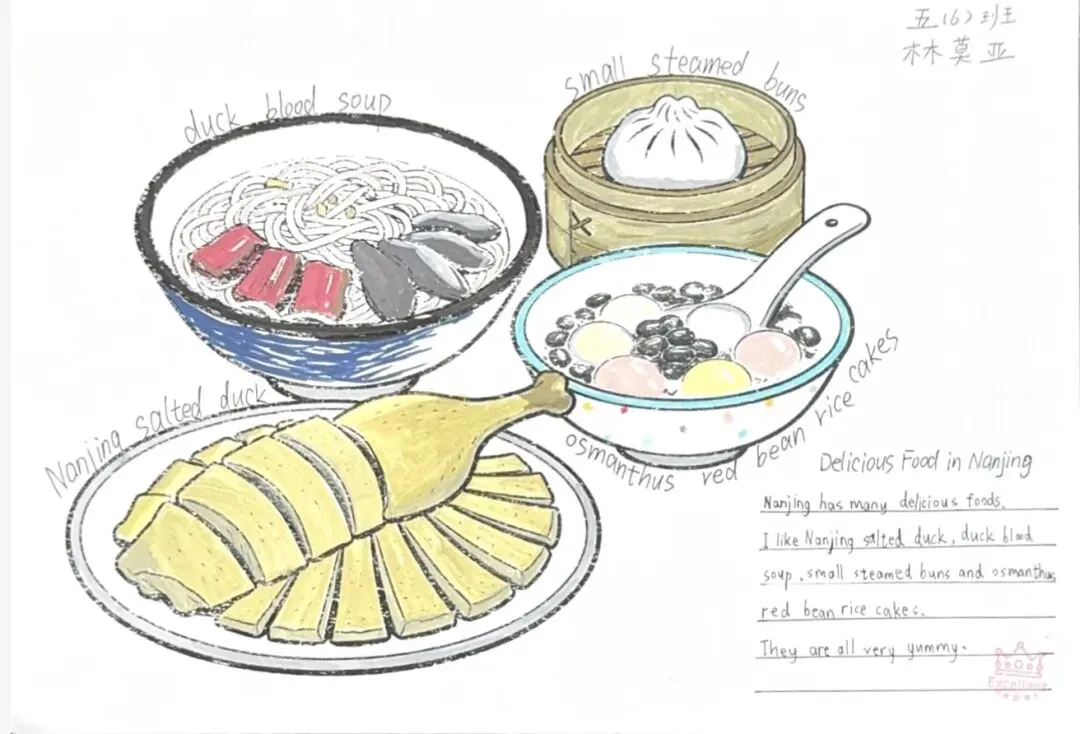 五(6)班
林莫亚
small steamed buns
duck blood soup
Nanjing salted duck
osmanthus red bean rice cakes
Delicious Food in Nanjing
Nanjing has many delicious foods.
I like Nanjing salted duck, duck blood
soup, small steamed buns and osmanthus
red bean rice cakes.
They are all very yummy.
Excellent